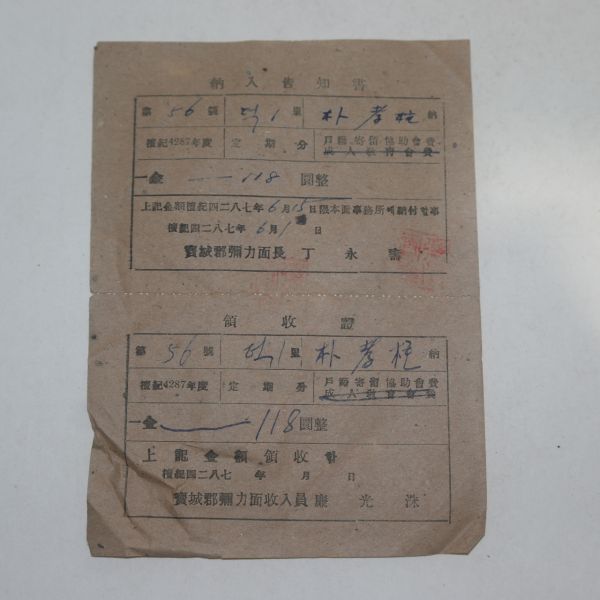 納入告知書
第 56 號 덕 1 里 朴 孝 柱 納
檀紀4287年度 定期分 戶 寄留協助會費
成人敎育會費
一金 118 圜整
上記金額檀紀四二八七年 6 月 15 日限本面事務所에納付할事
檀紀四二八七年 6 月 1 日
寶城郡彌力面長 丁 永
領收證
第 56 號 덕 1 里 朴 孝 柱 納
檀紀4287年度 定期分 戶 寄留協助會費
成人敎育會費
一金 118 圜整
上記金額領收함
檀紀四二八七 年 月 日
寶城郡彌力面收入員 廉 光 洙